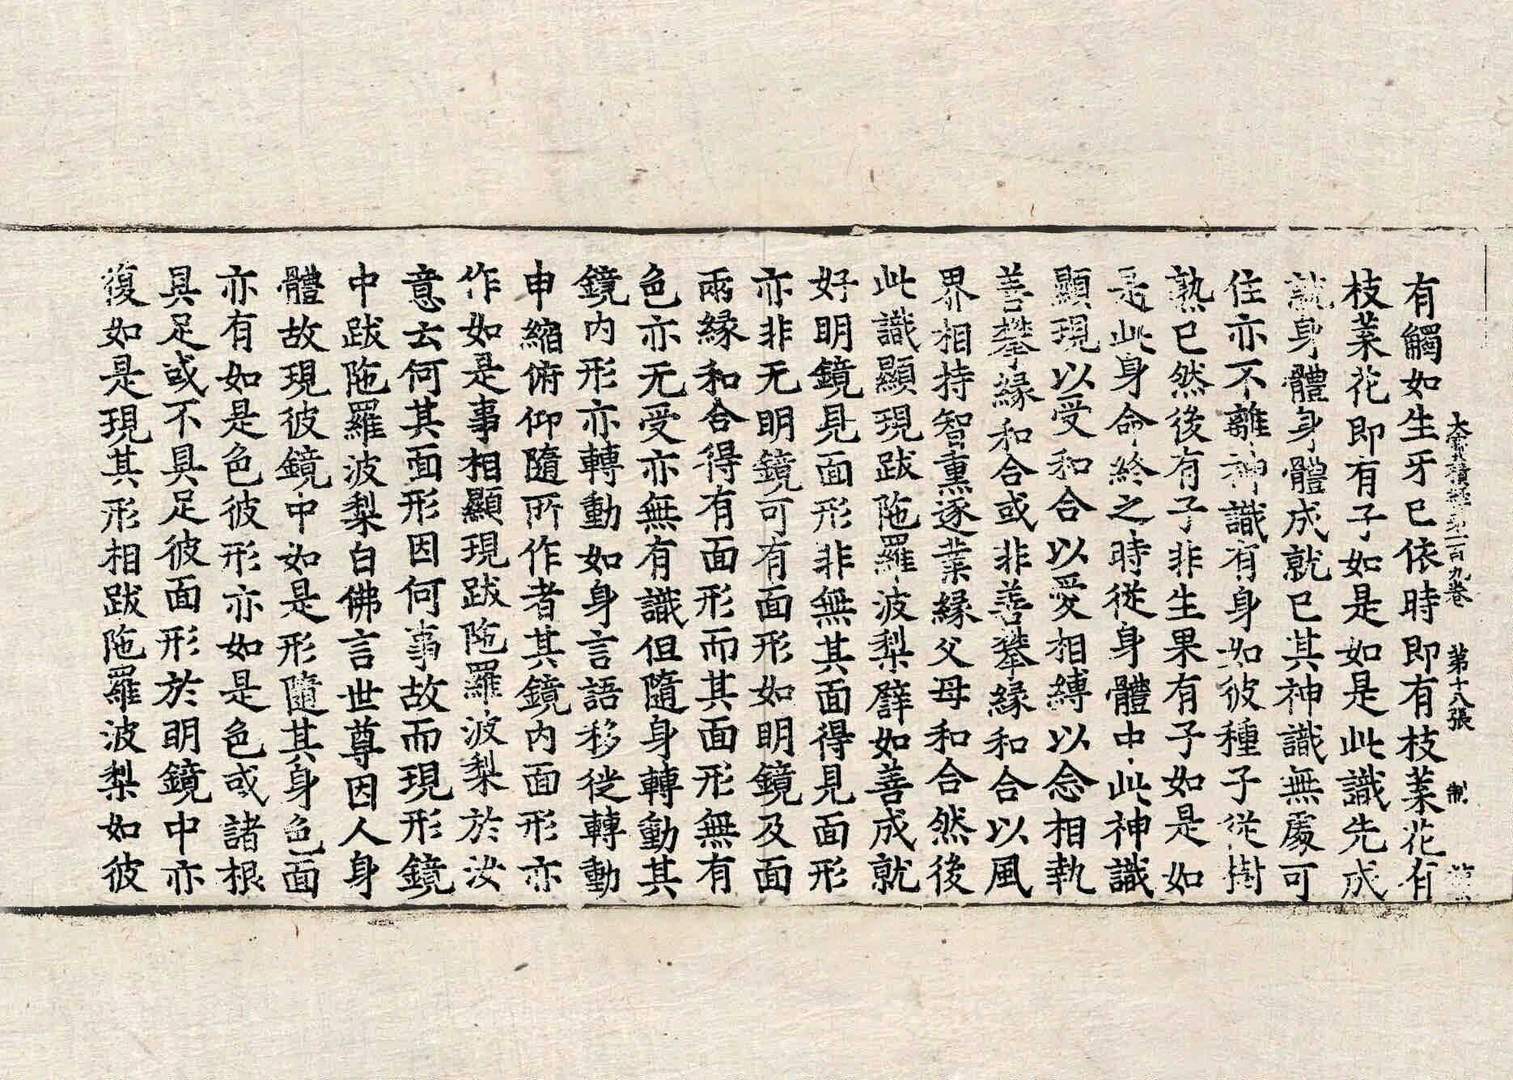 大寶積經第一百九卷 第十八張 制
有觸如生牙已依時即有枝葉花有
枝葉花即有子如是如是此識先成
就身體身體成就已其神識無處可
住亦不離神識有身如彼種子從樹
熟已然後有子非生果有子如是如
是此身命終之時從身體中此神識
顯現以受和合以愛相縛以念相執
善攀緣和合或非善攀緣和合以風
界相持智熏逐業緣父母和合然後
此識顯現跋陁羅波梨譬如善成就
好明鏡見面形非無其面得見面形
亦非无明鏡可有面形如明鏡及面
兩緣和合得有面形而其面形無有
色亦无受亦無有識但隨身轉動其
鏡內形亦轉動如身言語移徙轉動
申縮俯仰隨所作者其鏡內面形亦
作如是事相顯現跋陁羅波梨於汝
意云何其面形因何事故而現形鏡
中跋陁羅波梨白佛言世尊因人身
體故現彼鏡中如是形隨其身色面
亦有如是色彼形亦如是色或諸根
具足或不具足彼面形於明鏡中亦
復如是現其形相跋陁羅波梨如彼